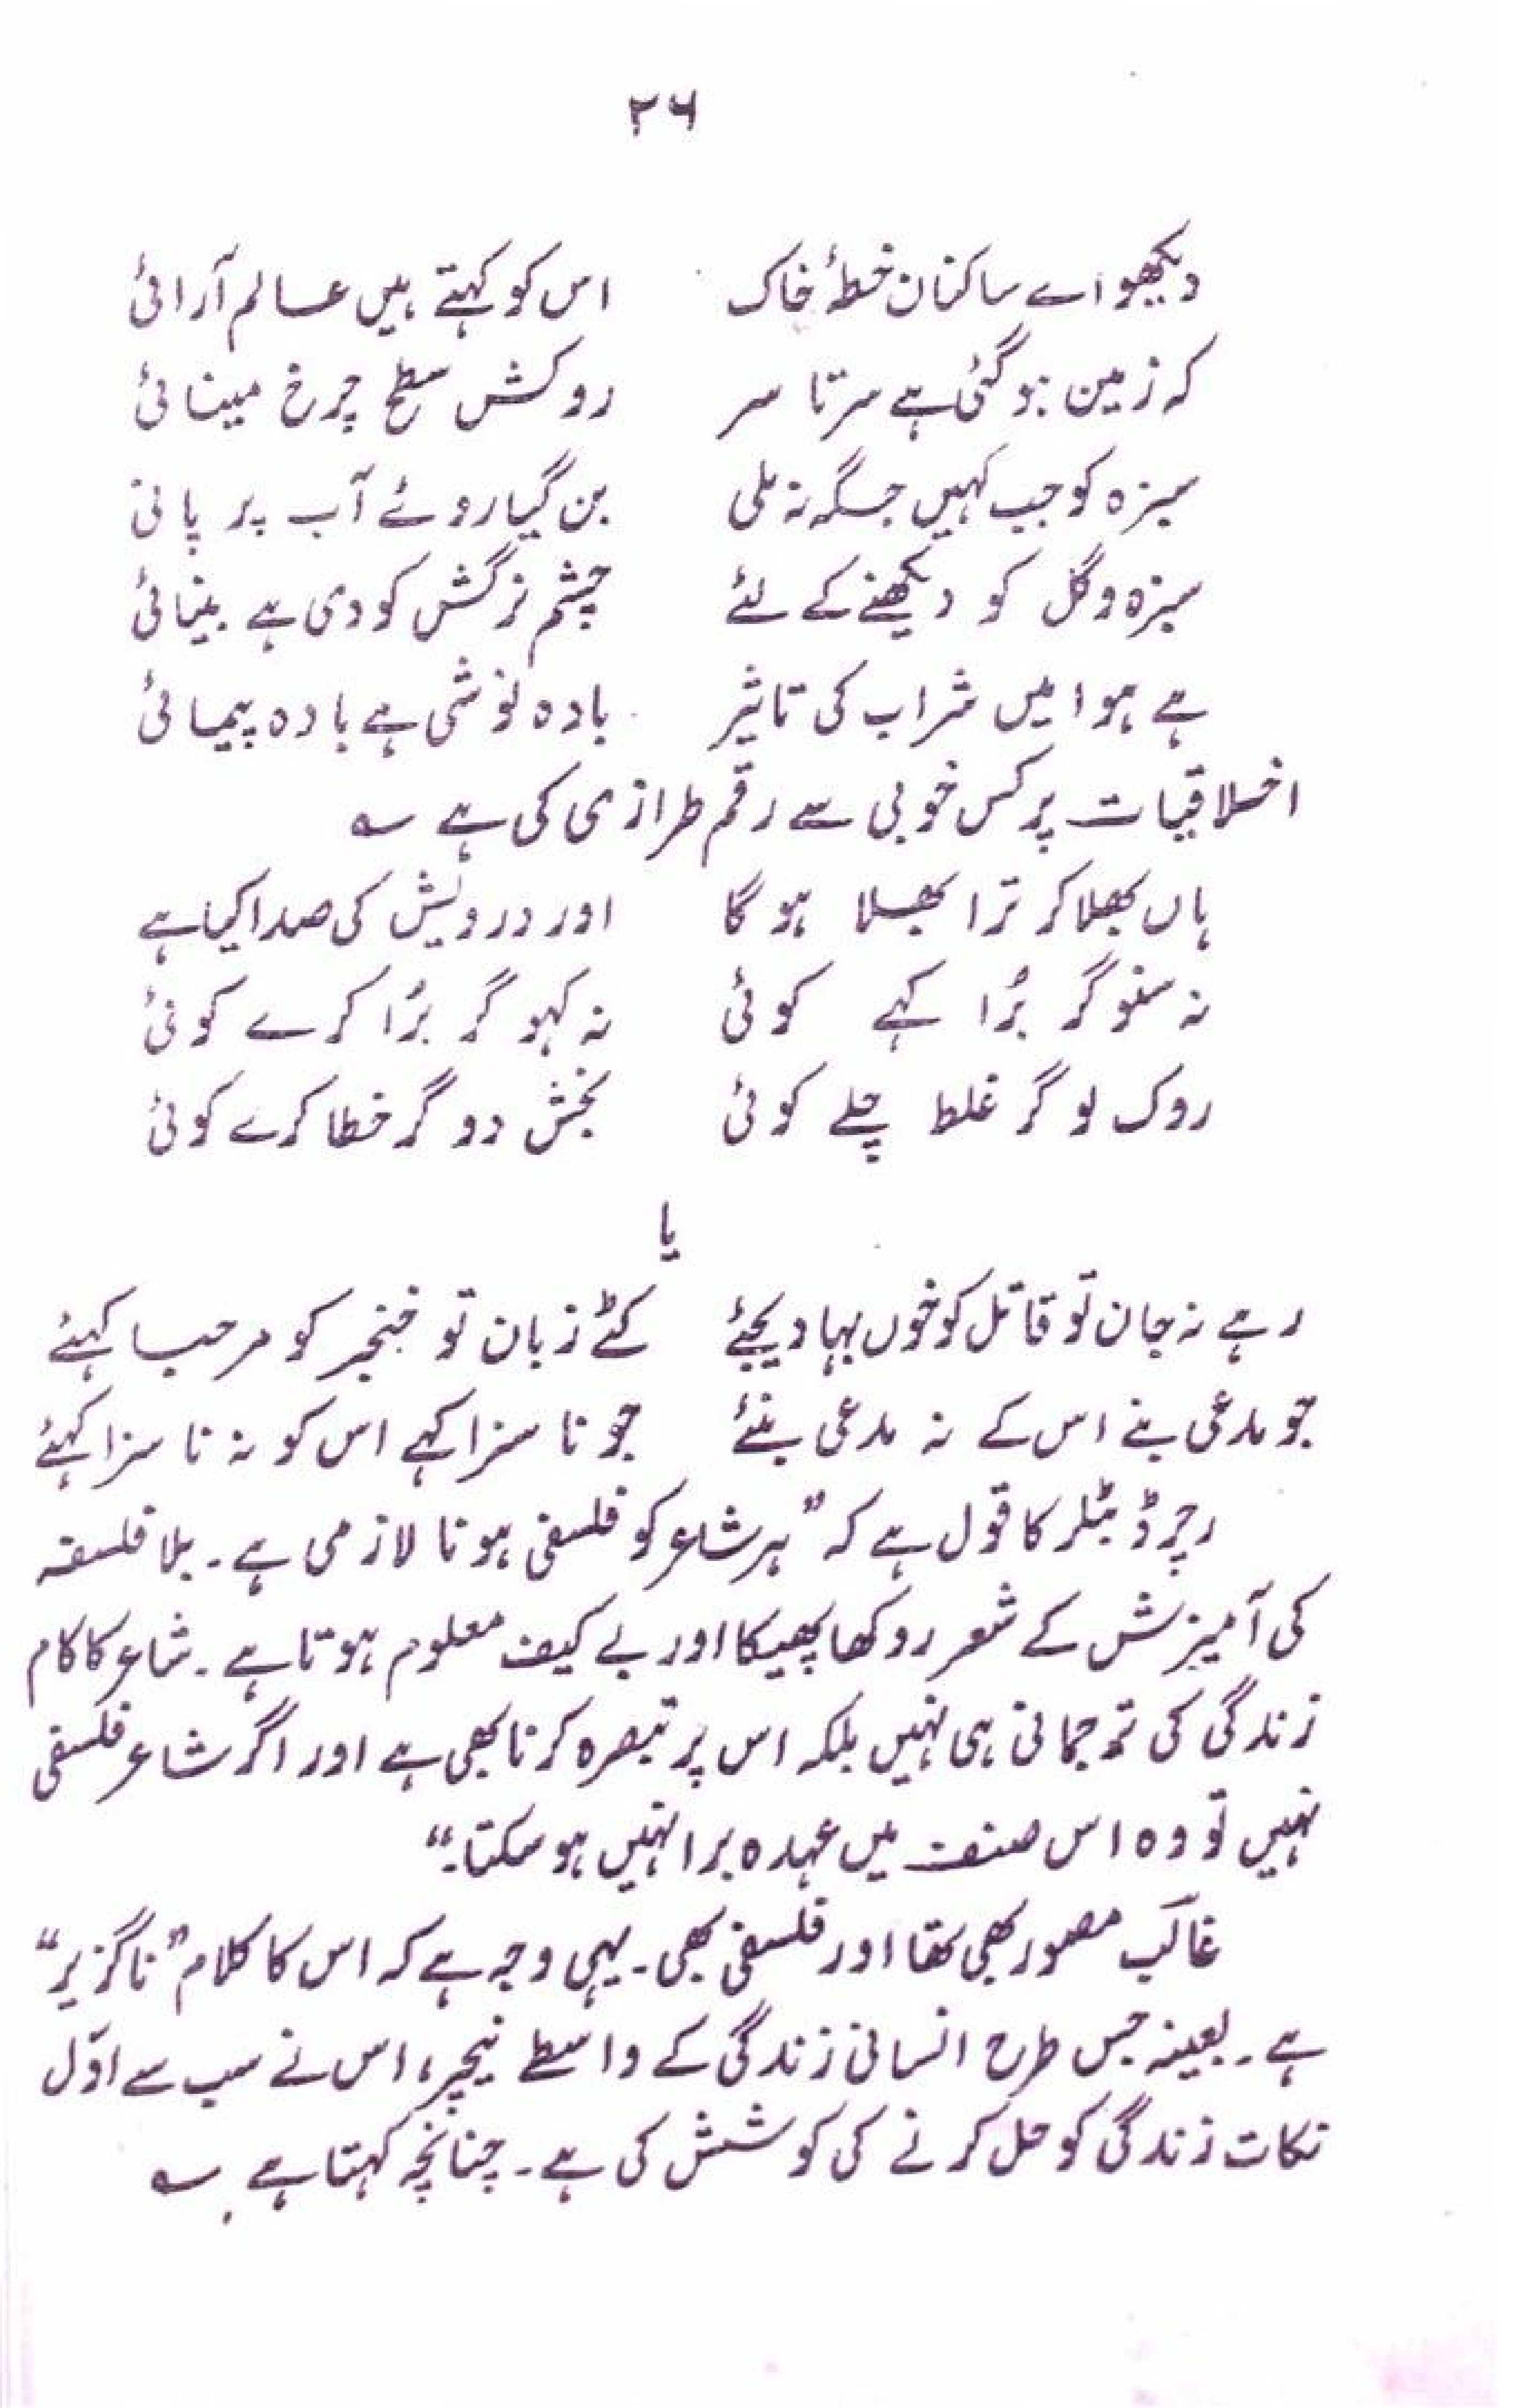 ۲۶
دیکھو اے ساکنان خطۂ خاک اس کو کہتے ہیں عالم آرائی
کہ زمین ہو گئی ہے سر تا سر روکش سطح چرخ مینائی
سبزہ کو جب کہیں جگہ نہ ملی بن گیا روئے آب پر پانی
سبزہ و گل کو دیکھنے کے لئے چشم نرگش کو دی ہے بینائی
ہے ہوا میں شراب کی تاثیر بادہ نوشی ہے بادہ پیمائی
اخلاقیات پر کس خوبی سے رقم طرازی کی ہے ؎
ہاں بھلا کر ترا بھلا ہو گا اور درویش کی صدا کیا ہے
نہ سنو گر بُرا کہے کوئی نہ کہو گر بُرا کرے کوئی
روک لو گر غلط چلے کوئی بخش دو گر خطا کرے کوئی
یا
رہے نہ جان تو قاتل کو خوں بہا دیجئے کٹے زبان تو خنجر کو مرحبا کہئے
جو مدعی بنے اس کے نہ مدعی بنئے جو نا سزا کہے اس کو نہ نا سزا کہئے
رچرڈ بٹلر کا قول ہے کہ ”ہر شاعر کو فلسفی ہونا لازمی ہے۔ بلا فلسفہ
کی آمیزش کے شعر روکھا پھیکا اور بے کیف معلوم ہوتا ہے۔ شاعر کا کام
زندگی کی ترجمانی ہی نہیں بلکہ اس پر تبصرہ کرنا بھی ہے اور اگر شاعر فلسفی
نہیں تو وہ اس صنف میں عہدہ برا نہیں ہو سکتا۔“
غالب مصور بھی تھا اور فلسفی بھی۔ یہی وجہ ہے کہ اس کا کلام ”ناگزیر“
ہے۔ بعینہ جس طرح انسانی زندگی کے واسطے نیچر، اس نے سب سے اوّل
نکات زندگی کو حل کرنے کی کوشش کی ہے۔ چنانچہ کہتا ہے ؎